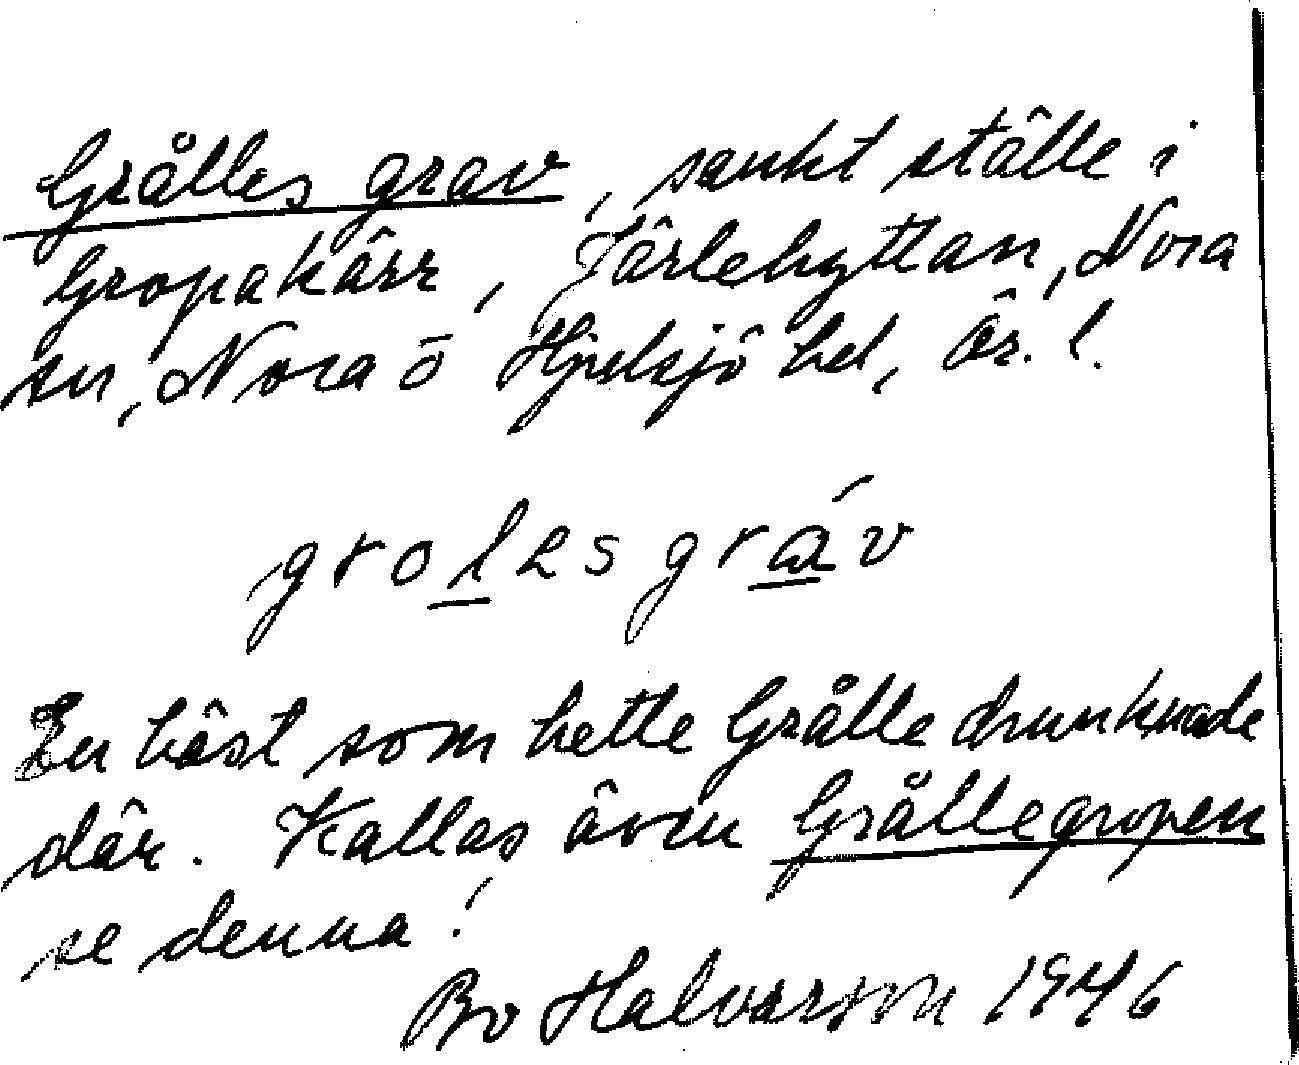 Grålles grav, sankt ställe i
Gropakärr, Järlehyttan, Nora
sn, Nora o Hjulsjö bd, Ör. l.
grolesgráv
En häst som hette Grålle drunknade
där. Kallas även Grållegropen
se denna!
Bo Halvarson 1946